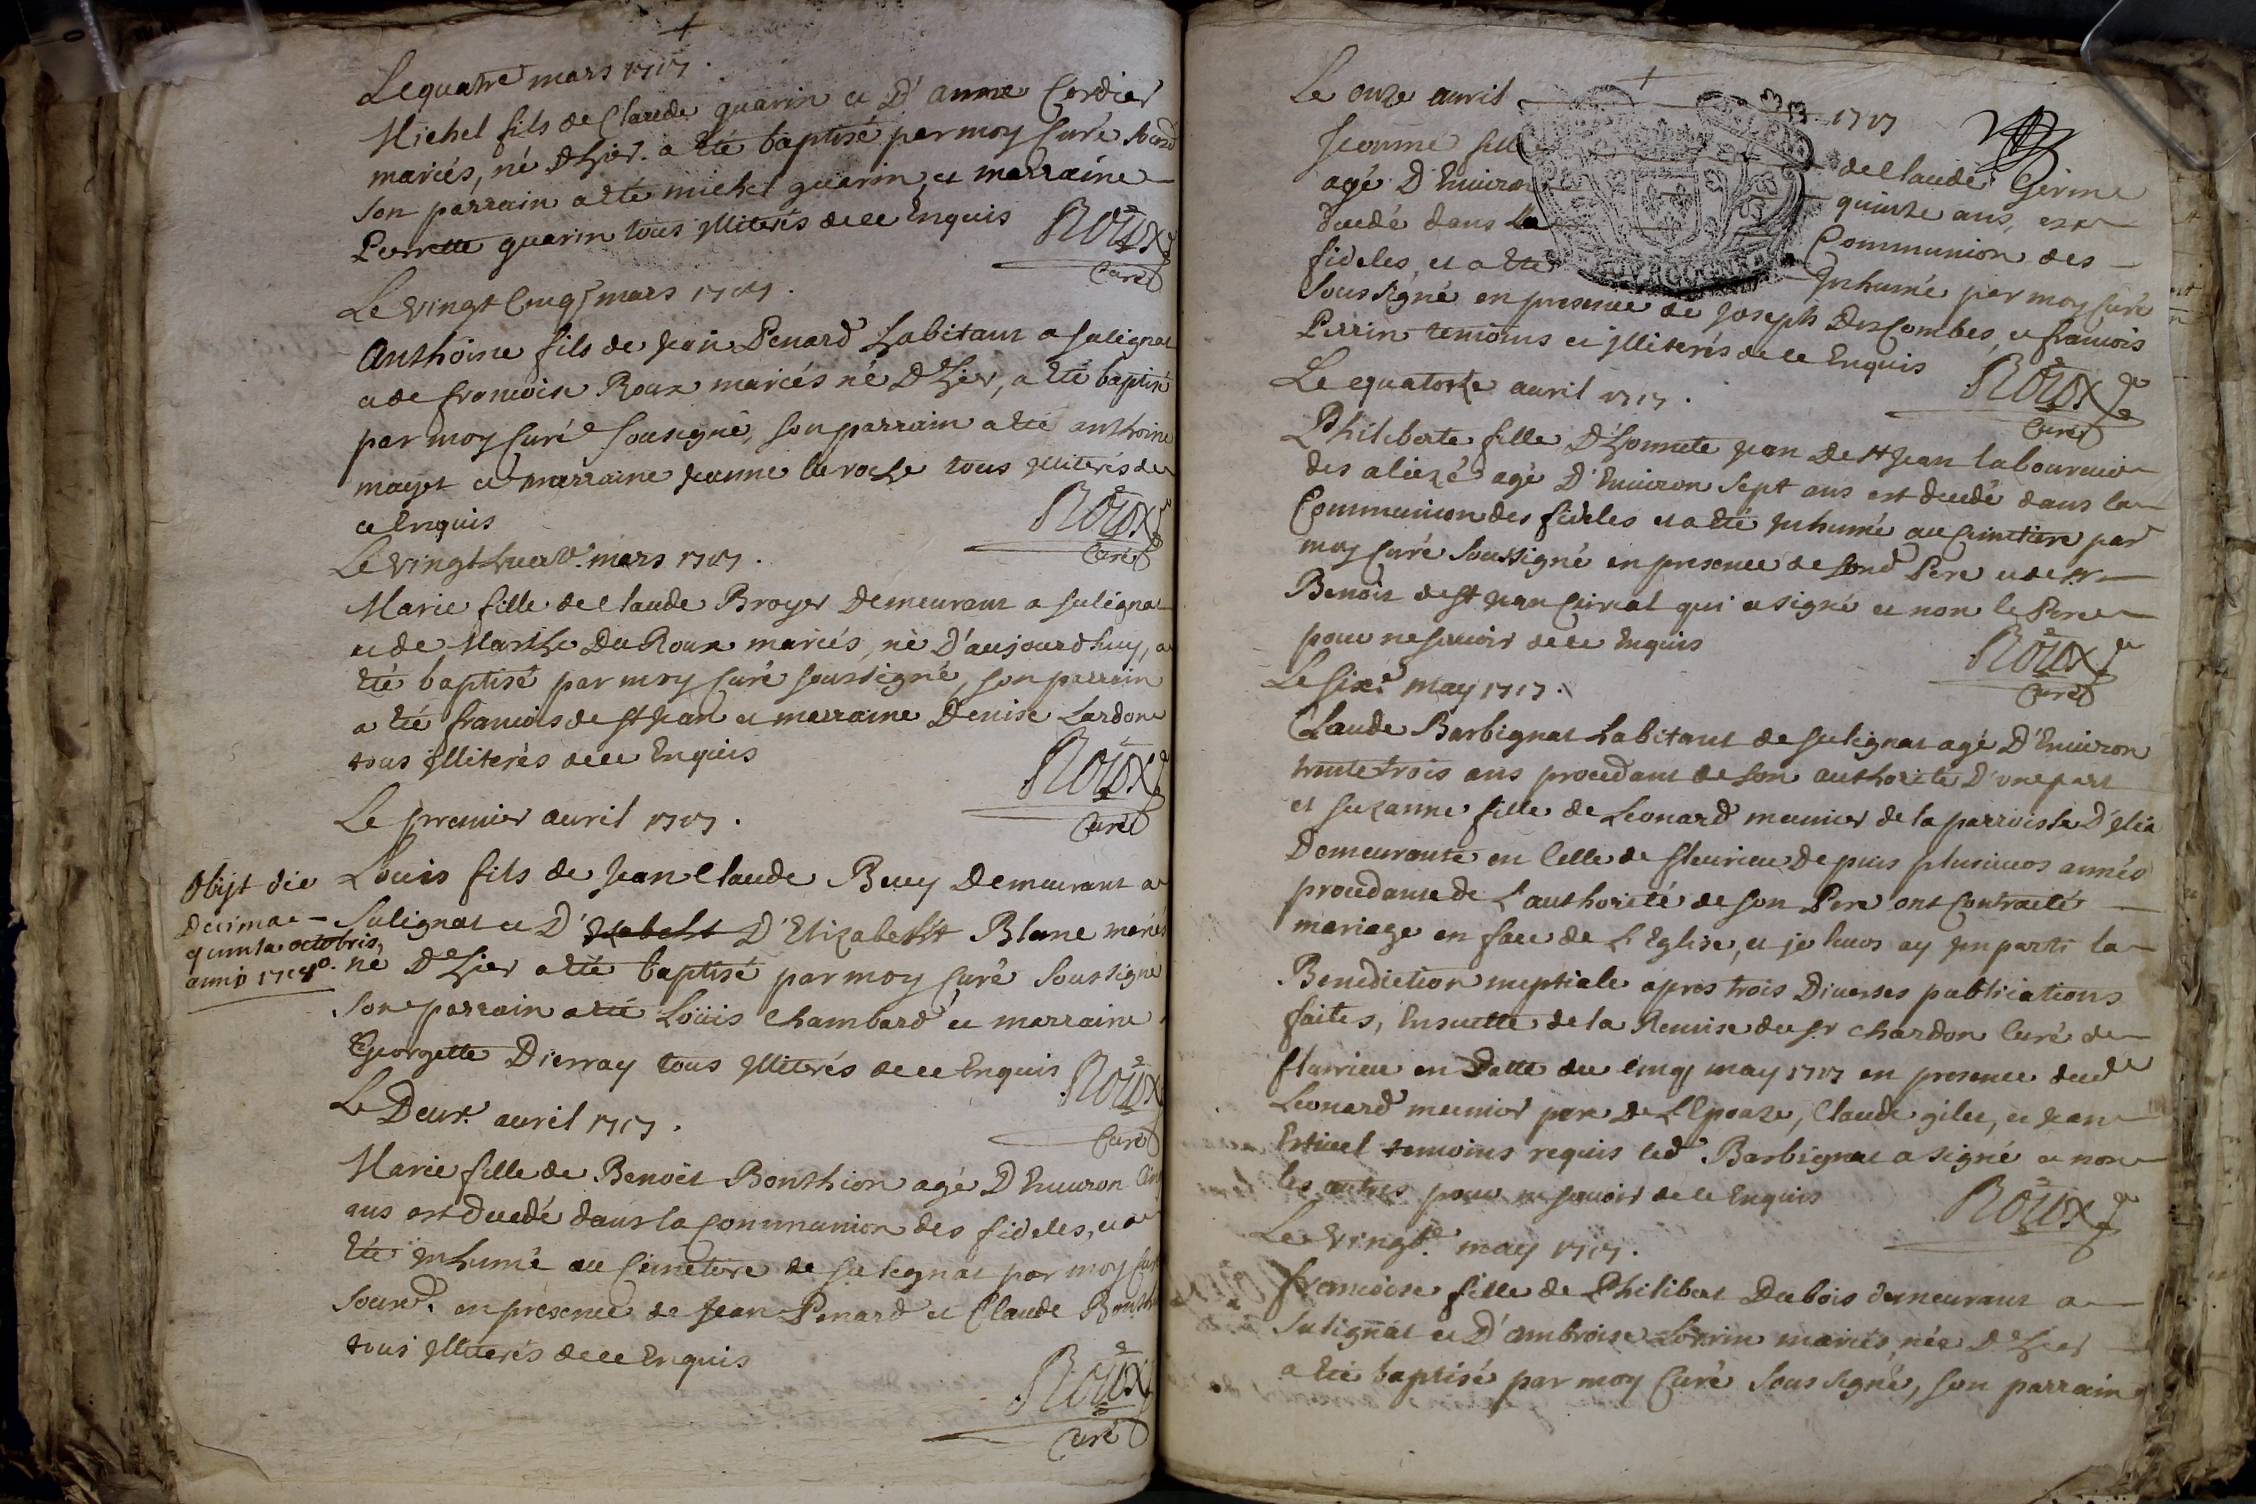 Le quatre mars 1717.
Michel fils de Claude guarin et D'anne Cordier
mariés, né D'hier a eté baptisé par moy Curé
son parrain a eté michel guarin et marraine
Perrette guarin tous jlliterés de ce Enquis
Roux
Curé
Le vingt cinq mars 1717.
Anthoine fils de jean Penard habitant a sulignat
et de francoise Roux mariés né D'hier, a eté baptisé
par moy Curé sousigné, son parrain a eté anthoine
mayet et marraine jeanne laroche tous jlliterés de
ce Enquis
Roux
Curé
Le vingt huit mars 1717.
Marie fille de Claude Broyer Demeurant a sulignat
et de Marthe Du Roux mariés, né D'aujourdhuy, a
eté baptisé par moy Curé soussigné, son parrain
a eté francois de st jean et marraine Denise Lardon
tous jlliterés de ce Enquis
Roux
Curé
Le premier avril 1717.
Obijt die
Decima
quinta octobris
anno 1717
Louis fils de jean Claude Buey Demeurant a
Sulignat et D' D'Elizabeth Blanc mariés
né D'hier a eté baptisé par moy Curé soussigné
son parrain a eté Loüis Chambard et marraine
Georgette Dierray tous jlliterés de ce Enquis
Roux
Curé
Le Deux. avril 1717.
Marie fille de Benoit Bonthion agé D'Environ
ans est decedé dans la Communion des fideles, et a
eté jnhumé au Cimetiere de sulignat par moy Curé
en presence de jean Penard et Claude
tous jlliterés de ce Enquis
Roux
Curé
Le onze avril 1717
Jeanne de Claude Girine
agé D'Environ quinze ans, est
decedé dans la Communion des
fideles, et a eté jnhumé par moy Curé
soussigné en presence de joseph DesCombes, et francois
Perrin temoins et jlliterés de ce Enquis
Roux
Curé
Le quatorze avril 1717.
Philiberte fille D'honnete jean De st jean laboureur
des alizé agé D'Environ sept ans est decedé dans la
Communion des fideles et a eté jnhumé au Cimetiere par
moy Curé soussigné en presence de sond Pere et de
Benoit de st jean qui a signé et non le Pere
pour ne scavoir de ce Enquis
Roux
Curé
Le six.e may 1717.
Claude Barbignat habitant de sulignat agé D'Environ
trente trois ans procedant de son authorité D'une part
et suzanne fille de Leonard meunier de la parroisse D'jlia
Demeurante en Celle de fleurieu Depuis plusieurs année
procedante de L'authorité de son Pere ont Contracté
mariage en face de L'Eglise, et je leurs ay jmparti la
Benediction nuptiale apres trois Diverses publications
faites, Ensuitte de la Remise du sr Chardon Curé de
flurrieu en Datte du cinq may 1717 en presence dud
Leonard meunier pere de L'Epouze, Claude gilet, et jean
Estivel temoins requis led Barbignat a signé et non
les autres pour ne scavoir de ce Enquis
Roux
Le vingt.e may 1717.
francoise fille de Philibert Dubois demeurant a
sulignat et D'ambroise Lorrin mariés, née D'hier
a eté baptisé par moy Curé soussigné, son parrain